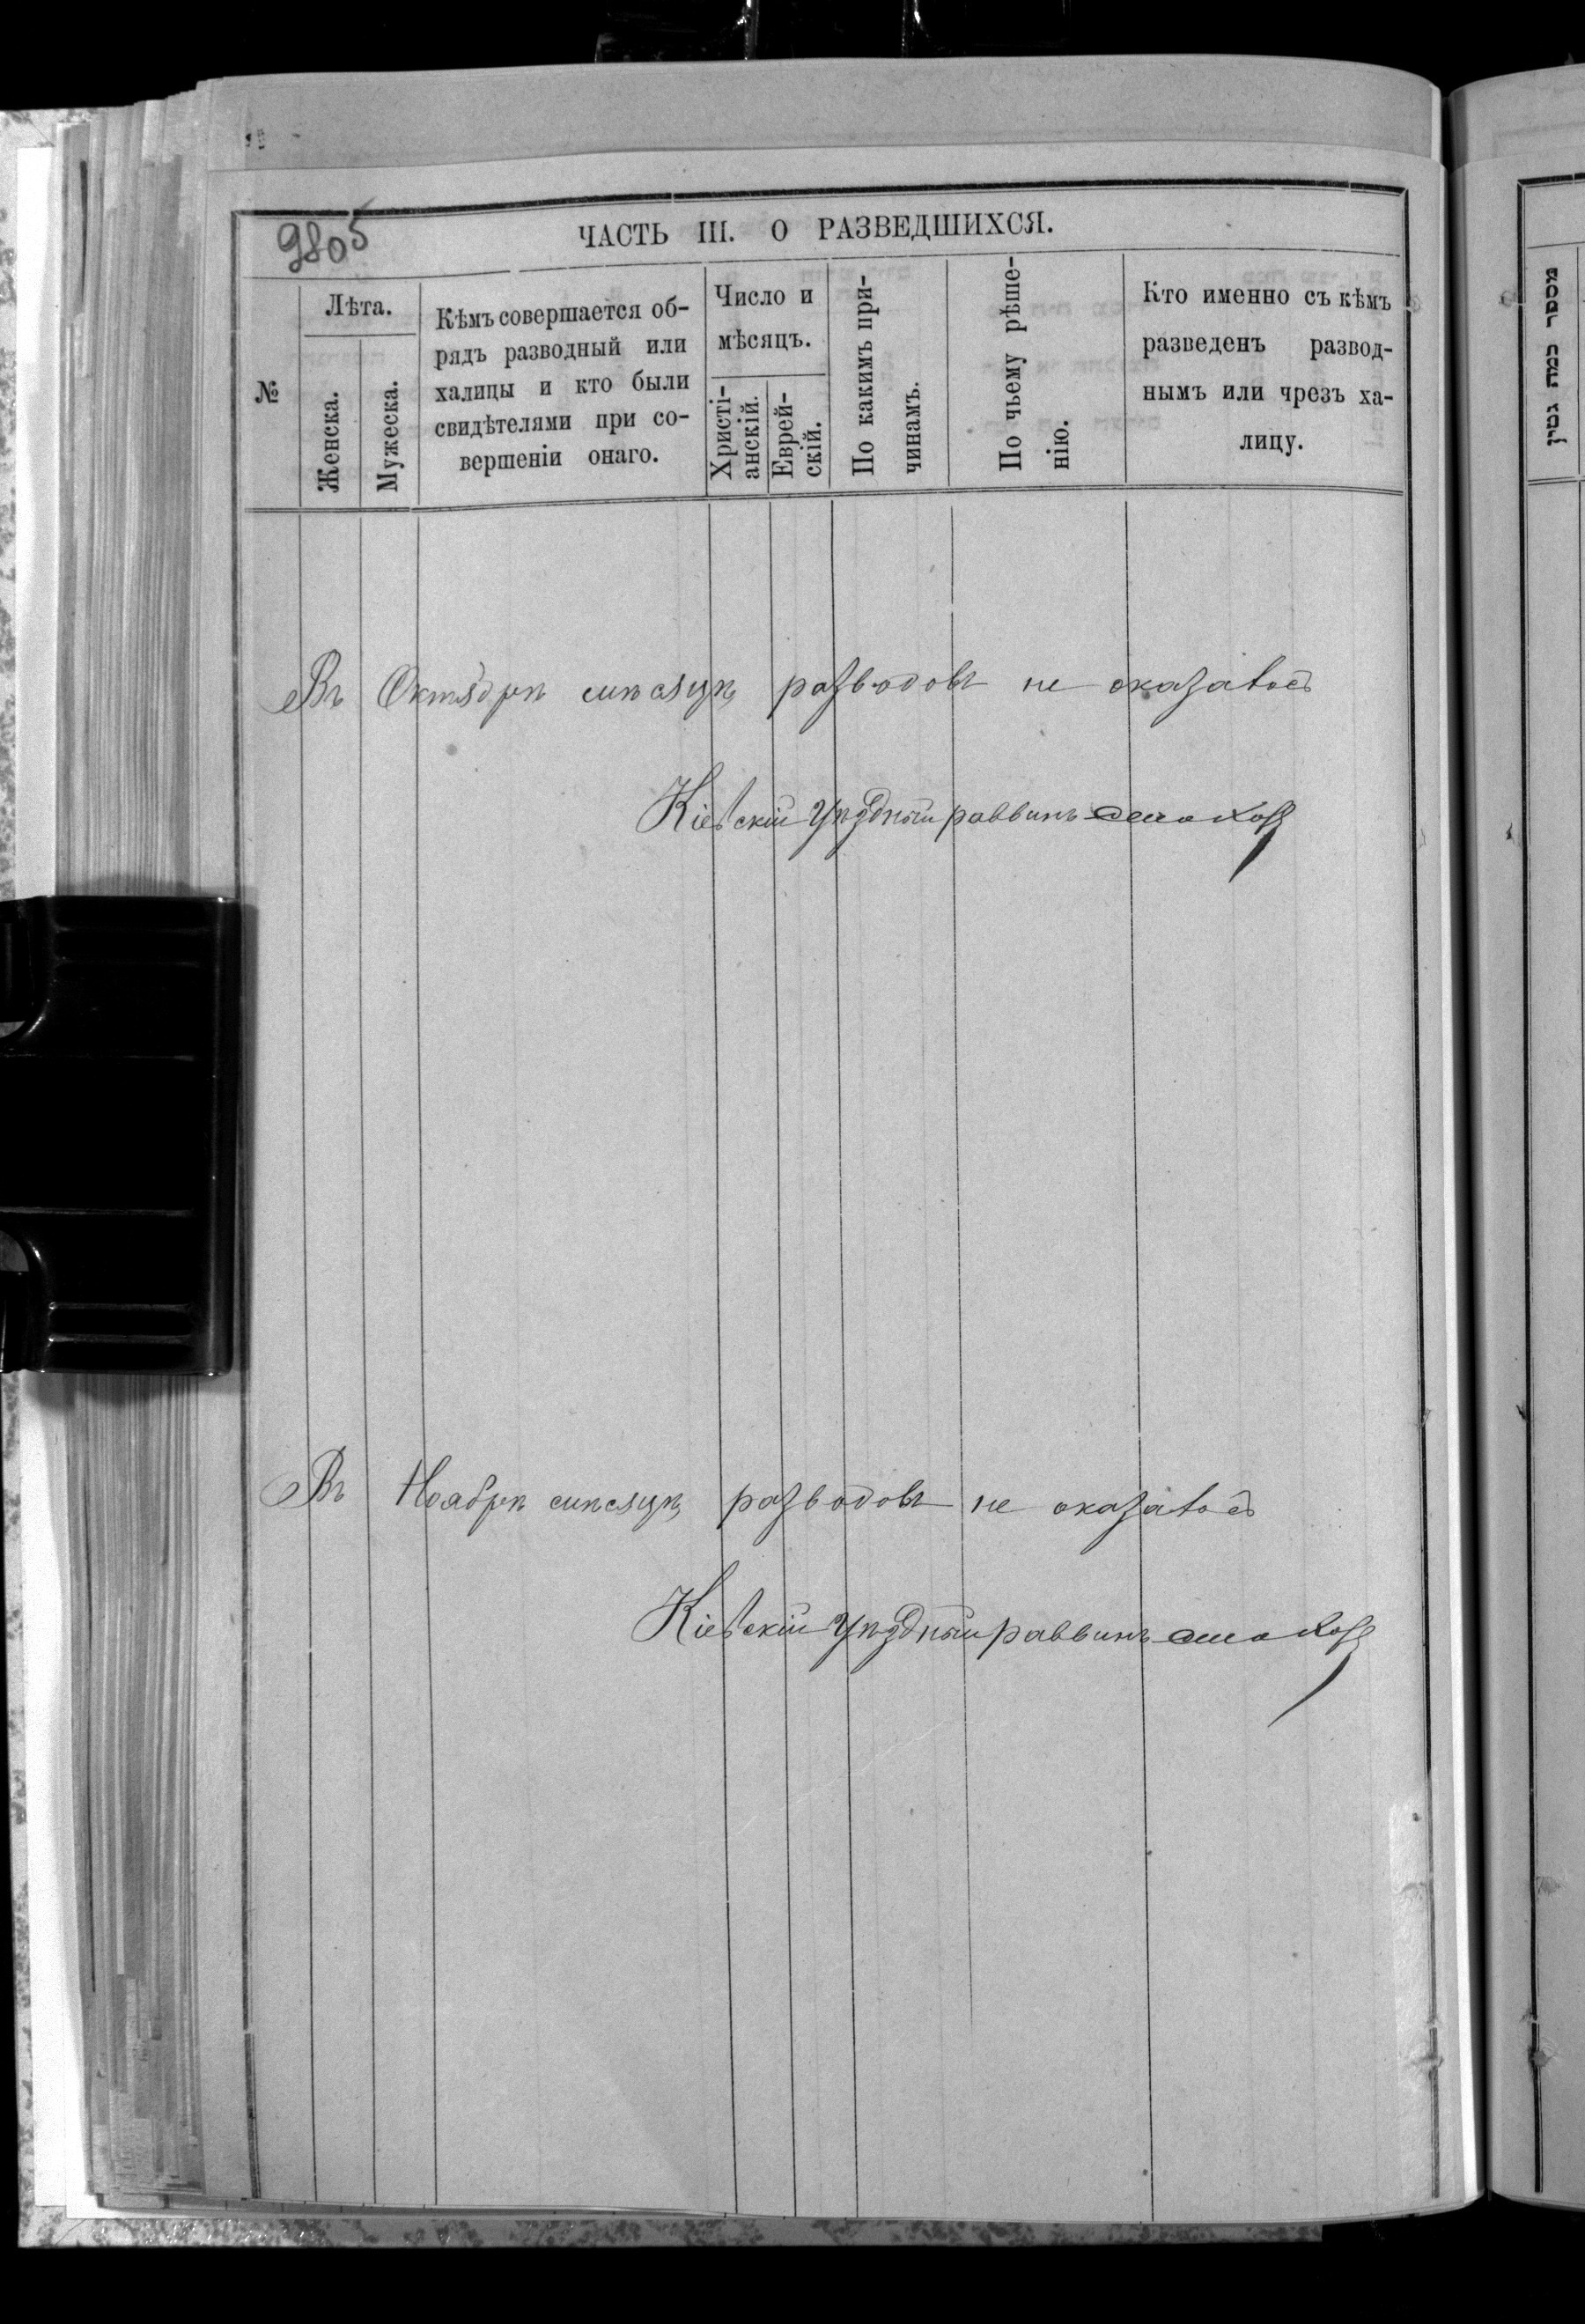 9805
ЧАСТЬ III. О РАЗВЕДШИХСЯ.
№
Лѣта.
Женска.
Мужеска.
Кѣмъ совершается об-
рядъ разводный или
халицы и кто были
свидѣтелями при со-
вершеніи онаго.
Число и
мѣсяцъ.
Христі-
анскій.
Еврей-
скій.
По какимъ при-
чинамъ.
По чьему рѣше-
нію.
Кто именно съ кѣмъ
разведенъ развод-
нымъ или чрезъ ха-
лицу.
Въ Октябрѣ мѣсяцѣ разводовъ не оказалось
Кіевскій Уѣздный раввинъ
Въ Ноябрѣ мѣсяцѣ разводовъ не оказалось
Кіевскій Уѣздный раввинъ
מספר כמה גטין